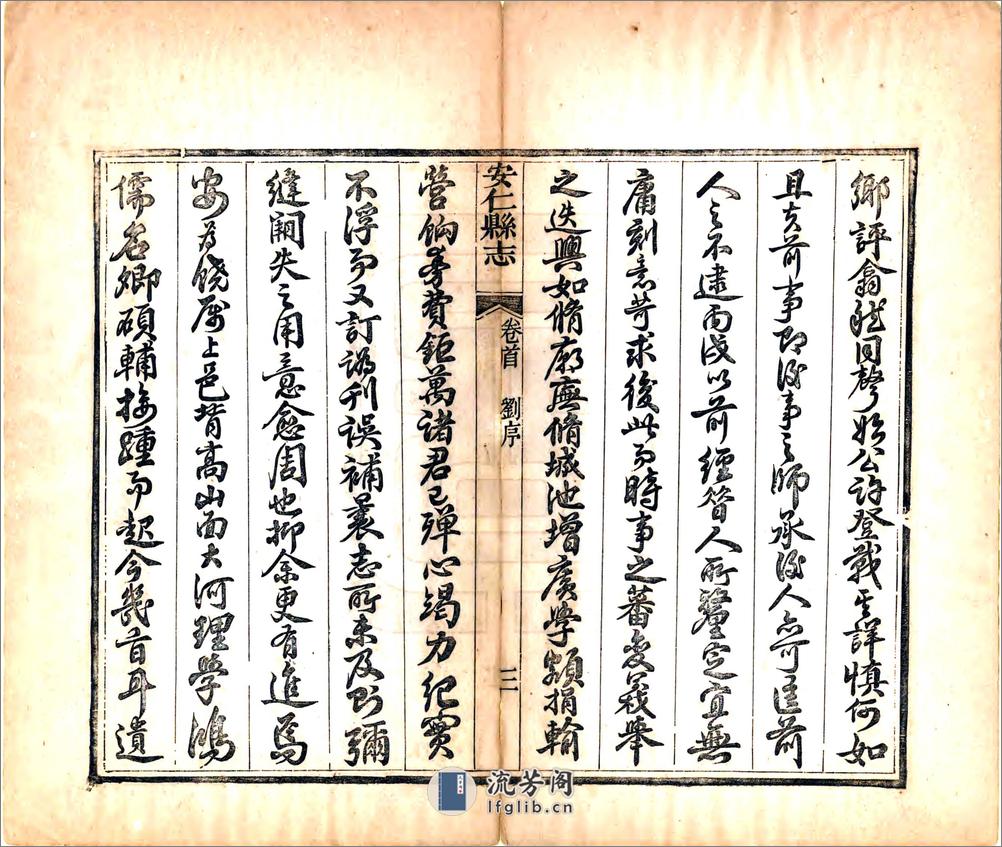 鄉評翕然同聲始公許登載其詳慎何如
且夫前事即後事之師承後人亦可匡前
人之不逮丙戌以前經昔人所釐定宜無
庸刻意苛求後此而時事之蕃變義舉
之迭興如脩廟廡脩城池增廣學額捐輸
安仁縣志
卷首 劉序
三
營餉等費鉅萬諸君已殫心竭力紀實
不浮而又訂譌刊误補曩志所未及則彌
縫闕失之用意愈周也抑余更有進焉
安為饒屬上邑背高山面大河理學鴻
儒名卿碩輔接踵而起今幾百年遺
流芳阁
lfglib.cn